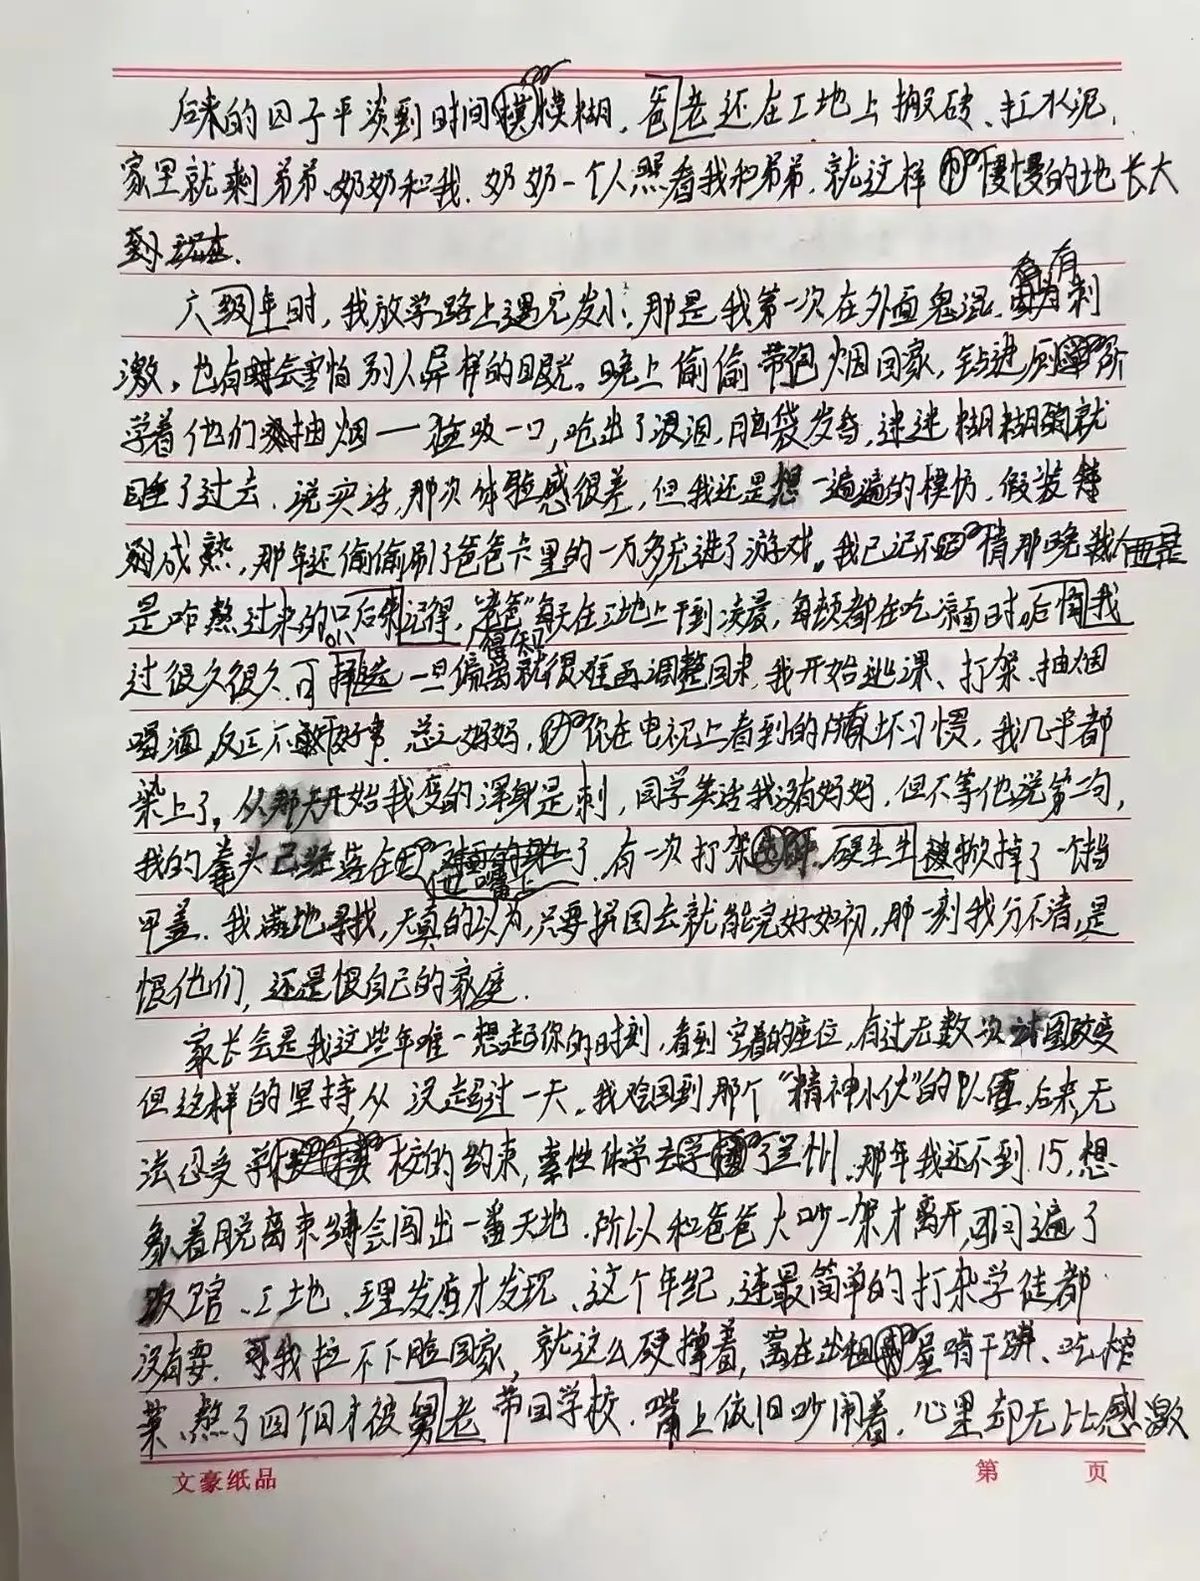 后来的日子平淡到时间模糊，爸老还在工地上搬砖、扛水泥，
家里就剩弟弟、奶奶和我，奶奶一个人照看我和弟弟，就这样慢慢的地长大
到现在.
六级年时，我放学路上遇见发小，那是我第一次在外面鬼混，有刺
激，也有时会害怕别人异样的眼光。晚上偷偷带包烟回家，钻进厕所
学着他们抽烟一猛吸一口，呛出了眼泪，脑袋发昏，迷迷糊糊的就
睡了过去，说实话，那次体验感很差，但我还是想一遍遍的模仿，假装
成熟，那年还偷偷刷了爸爸卡里的一万多充进了游戏。我已记不清那晚
是咋熬过来的只后来记得，"老爸"得知每天在工地上干到凌晨，每顿都在吃面时，后悔我
过很久很久，可一旦偏离就很难再调整回来，我开始逃课、打架、抽烟
喝酒，反正不干好事，总之妈妈，你在电视上看到的所有坏习惯，我几乎都
染上了。从那天开始我变的浑身是刺，同学笑话我没有妈妈，但不等他说第二句，
我的拳头已经落在他嘴上了，有一次打架，硬生生被掀掉了一个指
甲盖，我满地寻找，天真的以为，只要拼回去就能完好如初，那一刻我分不清，是
恨他们，还是恨自己的家庭.
家长会是我这些年唯一想起你的时刻，看到空着的座位，有过无数次试图改变
但这样的坚持，从没超过一天。我回到那个"精神小伙"的队伍，后来，无
法忍受学校的约束，索性休学去了兰州，那年我还不到15，想
象着脱离束缚会闯出一番天地，所以和爸爸大吵一架才离开，可问遍了
饭馆、工地、理发店才发现，这个年纪，连最简单的打杂学徒都
没有要，可我拉不下脸回家，就这么硬撑着，窝在出租屋啃干饼、吃榨
菜、熬了四个月才被舅老带回学校，嘴上依旧吵闹着，心里却无比感激
文豪纸品
第 页